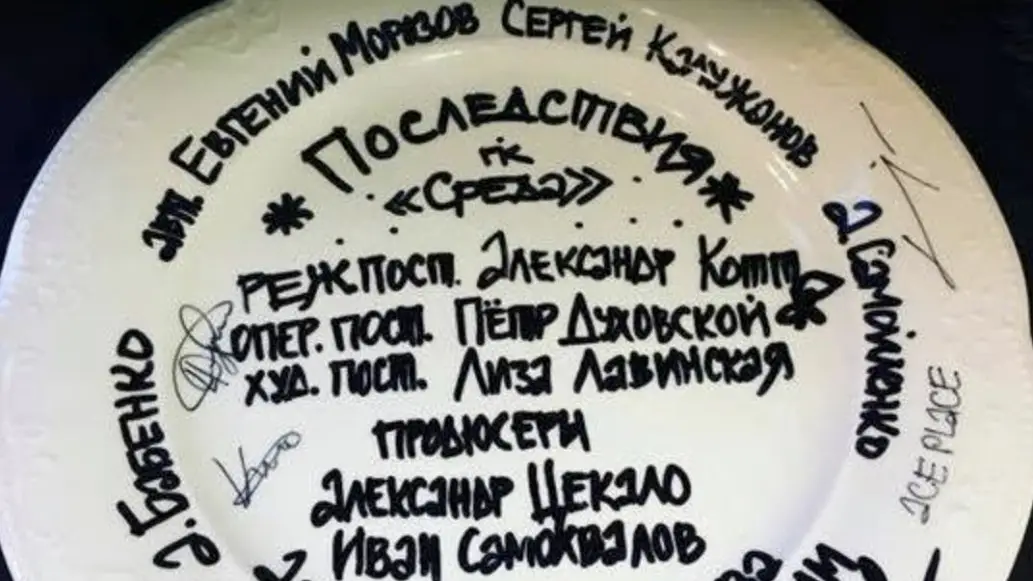 авт. Евгений Морозов Сергей Калужанов
Последствия
гк
«Среда»
реж пост. Александр Котт
опер. пост. Пётр Духовской
худ. пост. Лиза Лавинская
продюсеры
Александр Цекало
Иван Самохвалов
А. Бабенко
А. Самойленко
ACE PLACE